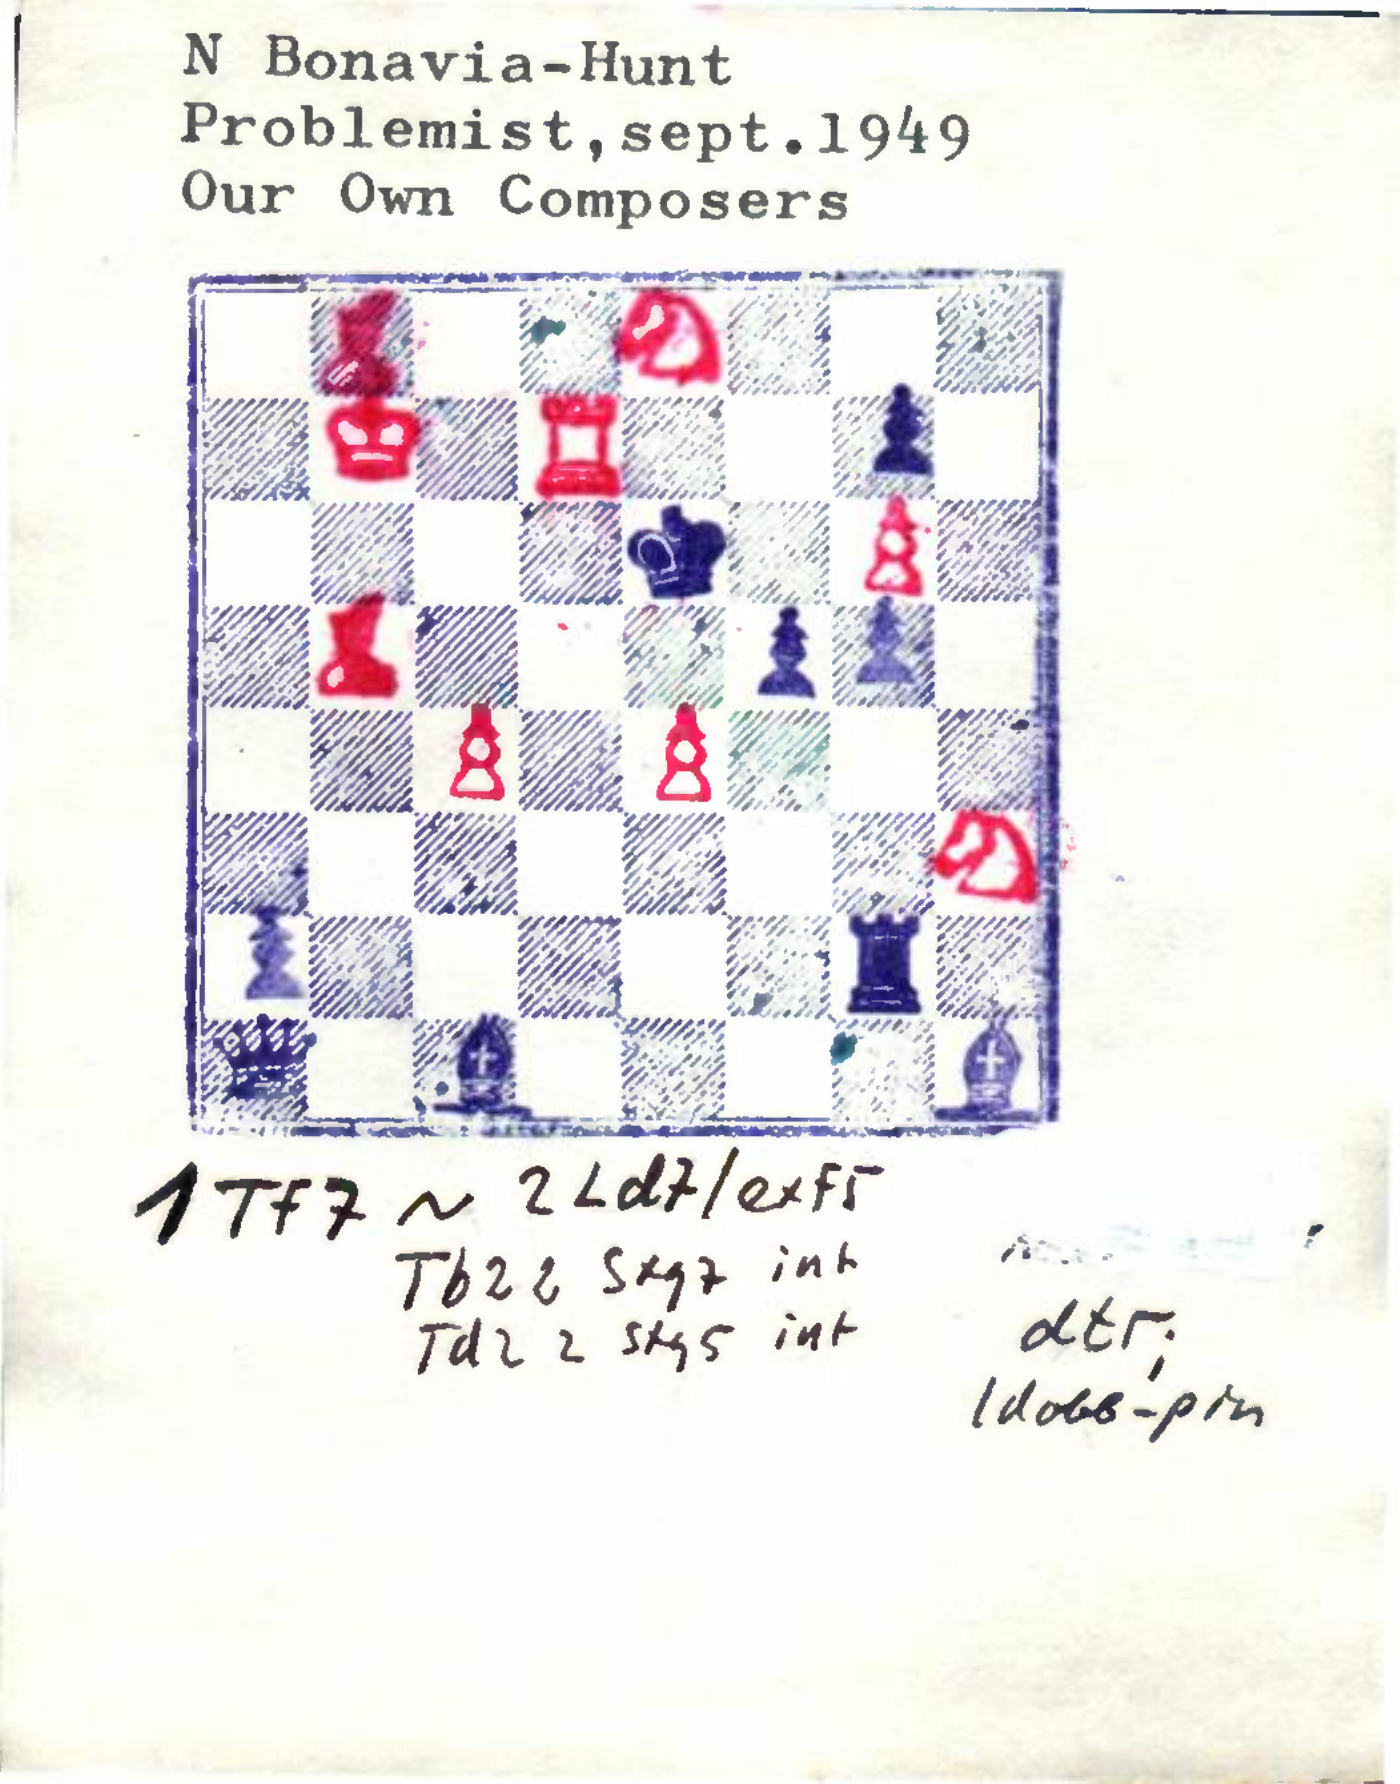 N Bonavia-Hunt
Problemist,sept.1949
Our Own Composers
1 Tf7 ~ 2 Ld7/exf5
Tb2 2 Sxg7 int
Td2 2 Sxg5 int
dtr;